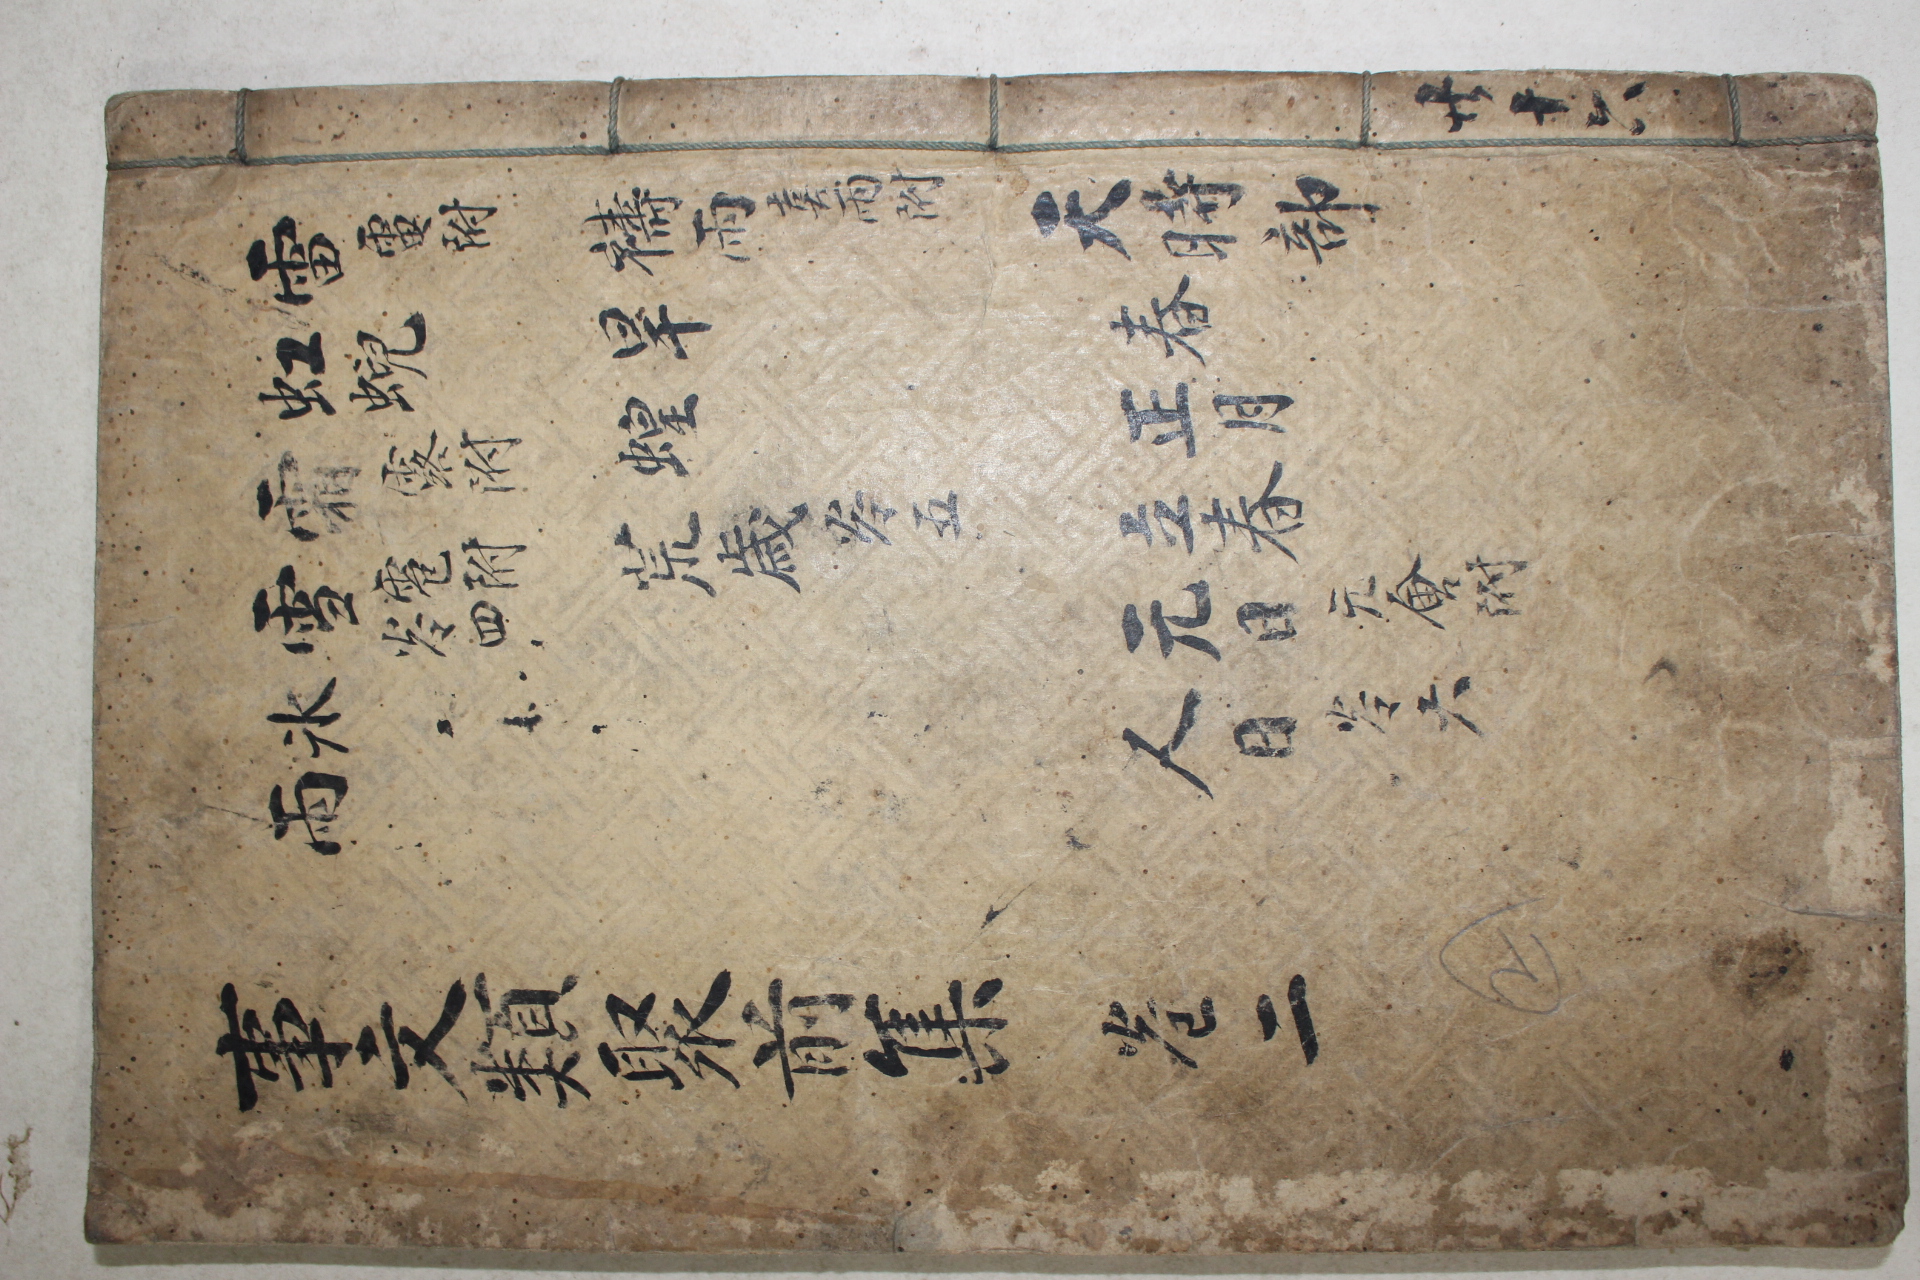 共十六
雷電附
虹蜺
霜露附
雪雹附
卷四
雨氷
禱雨喜雨附
旱
蝗
荒歲卷五
天時部
春
正月
立春
元日元會附
人日卷六
事文類聚前集 卷二